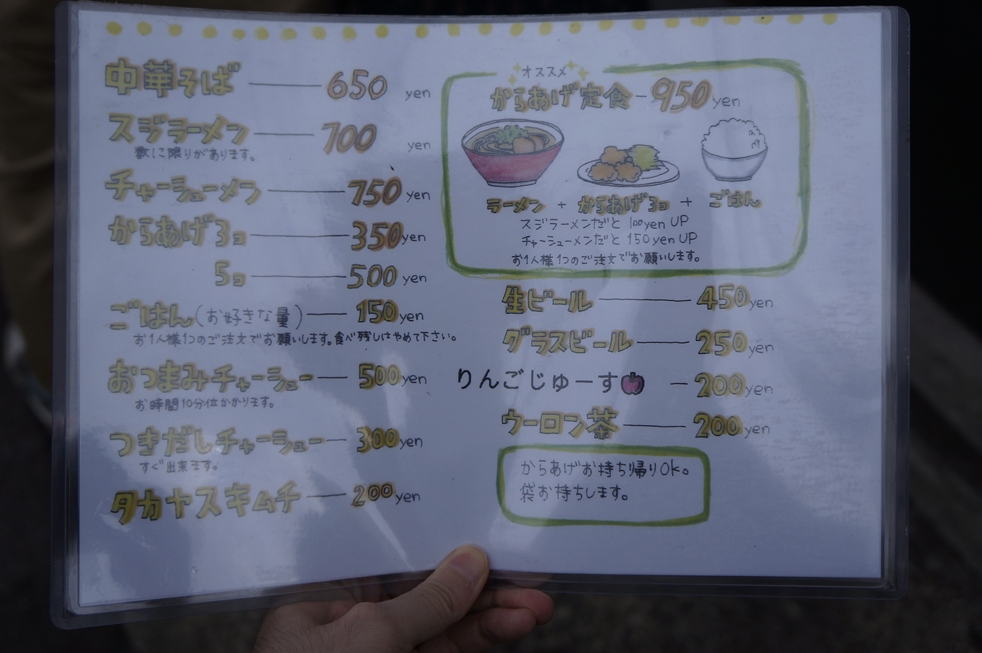 中華そば 650 yen
スジラーメン 700 yen
数に限りがあります。
チャーシューメン 750 yen
からあげ3コ 350 yen
5コ 500 yen
ごはん(お好きな量) 150 yen
お1人様1つのご注文でお願いします。食べ残しはやめて下さい。
おつまみチャーシュー 500 yen
お時間10分位かかります。
つきだしチャーシュー 300 yen
すぐ出来ます。
タカヤスキムチ 200 yen
オススメ
からあげ定食 - 950 yen
ラーメン + からあげ3コ + ごはん
スジラーメンだと 100yen UP
チャーシューメンだと 150yen UP
お1人様1つのご注文でお願いします。
生ビール 450 yen
グラスビール 250 yen
りんごじゅーす 200 yen
ウーロン茶 200 yen
からあげお持ち帰りOK。
袋お持ちします。